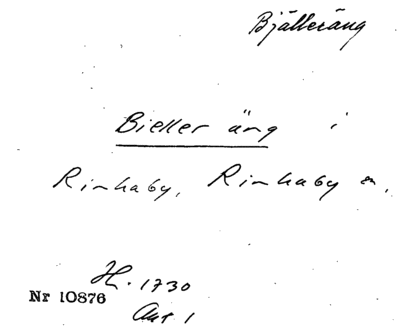 Bjälleräng
Bieller äng i
Rinkaby, Rinkaby sn.
H. 1730
Nr 10876
Akt 1